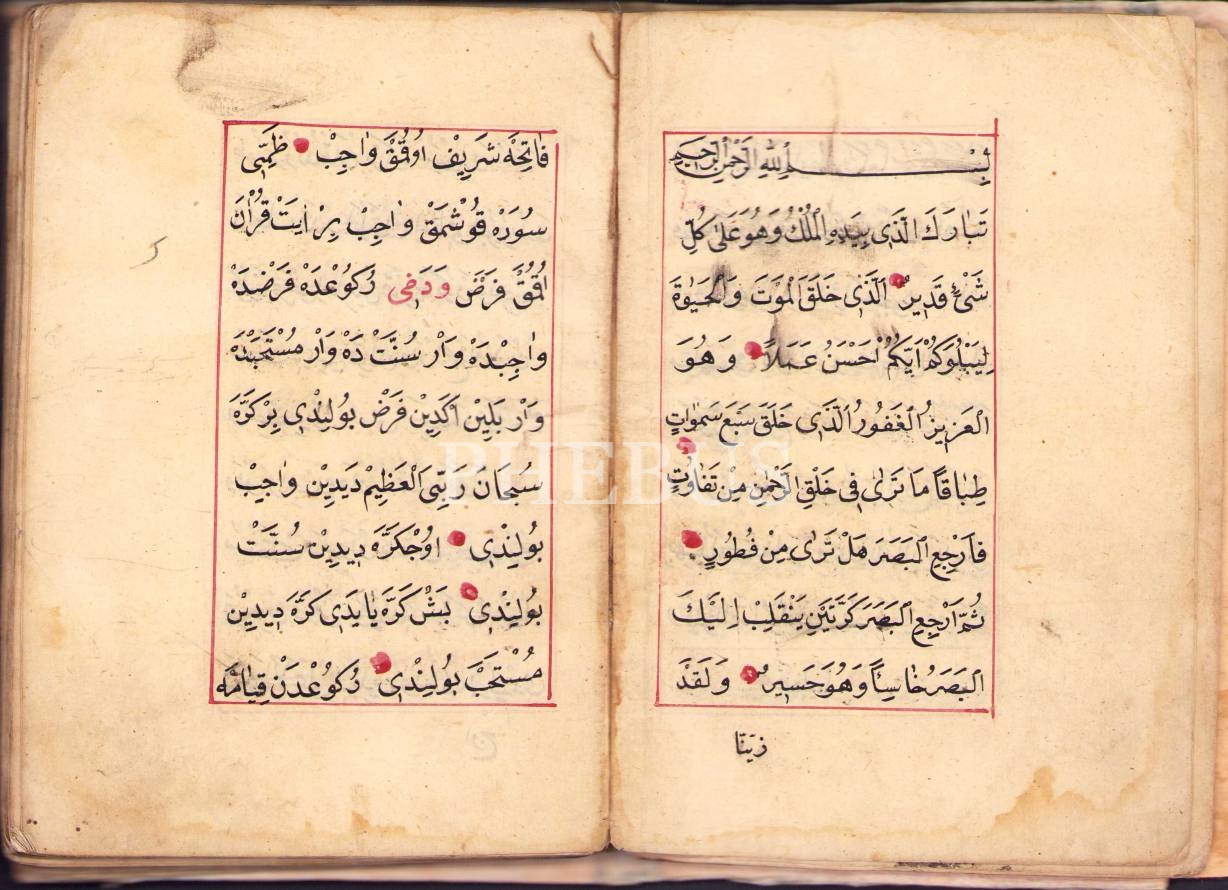 بِسْمِ اللهِ الرَّحْمٰنِ الرَّحِيمِ
تَبَارَكَ الَّذٖى بِيَدِهِ الْمُلْكُ وَهُوَ عَلٰى كُلِّ
شَىْءٍ قَدٖيرٌ الَّذٖى خَلَقَ الْمَوْتَ وَالْحَيٰوةَ
لِيَبْلُوَكُمْ اَيُّكُمْ اَحْسَنُ عَمَلاً وَهُوَ
الْعَزٖيزُ الْغَفُورُ الَّذٖى خَلَقَ سَبْعَ سَمٰوَاتٍ
طِبَاقًا مَا تَرٰى فٖى خَلْقِ الرَّحْمٰنِ مِنْ تَفَاوُتٍ
فَارْجِعِ الْبَصَرَ هَلْ تَرٰى مِنْ فُطُورٍ
ثُمَّ ارْجِعِ الْبَصَرَ كَرَّتَيْنِ يَنْقَلِبْ اِلَيْكَ
الْبَصَرُ خَاسِئًا وَهُوَ حَسٖيرٌ وَلَقَدْ
زَيَّنَّا
فَاتِحَهٔ شَرٖيفْ اوُقُمَقْ وَاجِبْ ظَمِّى
سُورَهْ قُوشْمَقْ وَاجِبْ بِرْ اٰيَتْ قُرْاٰنَ
اُقُمَقْ فَرْضْ وَدَخٖى رُكُوعْدَهْ فَرْضْدَهْ
وَاجِبْدَهْ وَارْ سُنَّتْ دَهْ وَارْ مُسْتَحَبْدَهْ
وَارْ بَلِينْ اَكَدِينْ فَرْضْ بُولِنْدٖى بِرْ كَرَّهَ
سُبْحَانَ رَبِّىَ الْعَظٖيمْ دَيَدِينْ وَاجِبْ
بُولِنْدٖى اوُجْكَرَّهَ دٖيدِينْ سُنَّتْ
بُولِنْدٖى بَشْ كَرَّهَ يَا يَدٖى كَرَّهَ دٖيدِينْ
مُسْتَحَبْ بُولِنْدٖى رُكُوعْدَنْ قِيَامَهْ
PHEBUS